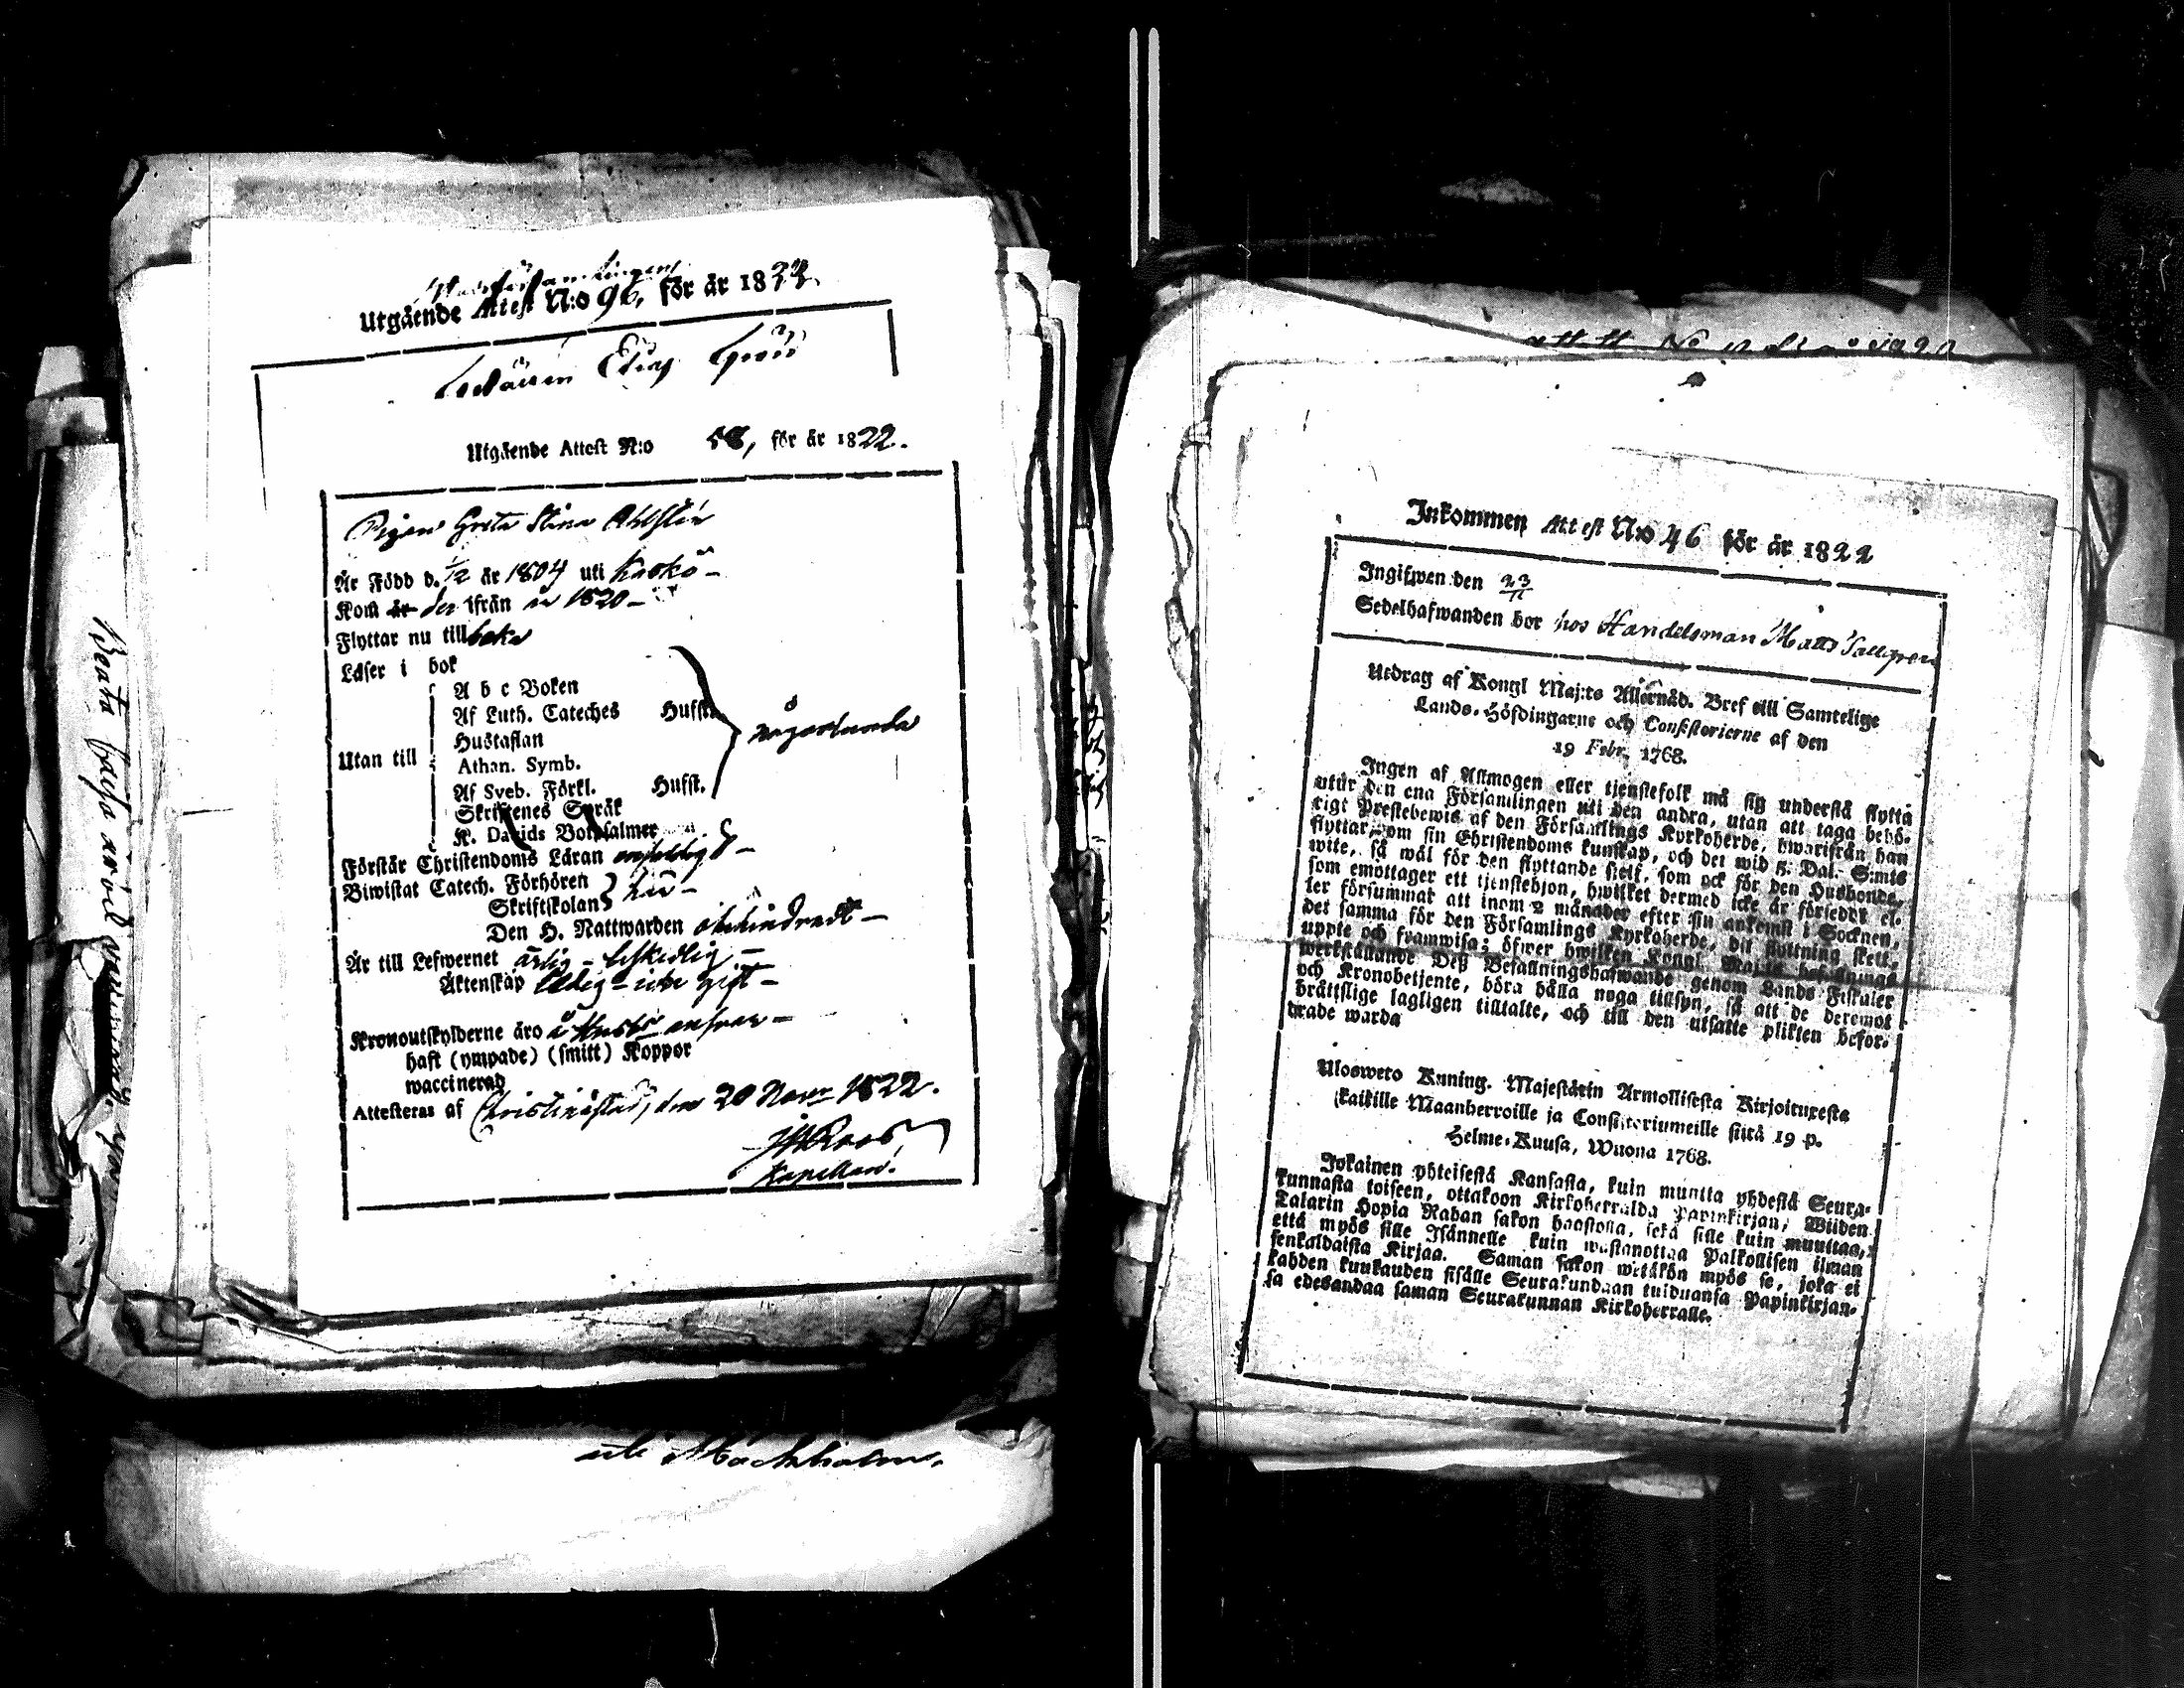 Utgående Attest N:o 96, för år 1822.
Utgående Attest N:o 58, för år 1822.
Pigan Greta Stina Ahlsten
Är Född d. 1/12 år 1804 uti Kaskö –
Kom år der ifrån år 1820 –
Flyttar nu tillbaka
Läser i bok
Utan till
A b c Boken
Af Luth. Cateches Hufst.
Hustaflan
Athan. Symb.
Af Sveb. Förkl. Hufst.
Skriftenes Språk
K. Davids Botpsalmer
någorlunda
Förstår Christendoms Läran
Biwistat Catech. Förhören
Skriftskolan
här –
Den H. Nattwarden obehindradt –
Är till Lefwernet ärlig – beskedlig –
Äktenskap ledig – icke gift –
Kronoutskylderne äro
haft (ympade) (smitt) Koppor
waccinerad
Attesteras af Christinæstad, den 20 Novr 1822.
Kapellan.
uti
Inkommen Attest N:o 46 för år 1822
Ingifwen den 23/11
Sedelhafwanden bor hos Handelsman Matts Sallgren
Utdrag af Kongl Maj:ts Allernåd. Bref till Samtelige
Lands-Höfdingarne och Consistorierne af den
19 Febr. 1768.
Ingen af Allmogen eller tjenstefolk må sig understå flytta
utur den ena Församlingen uti den andra, utan att taga behö-
rigt Prestebewis af den Församlings Kyrkoherde, hwarifrån han
flyttar, om sin Christendoms kunskap, och det wid 5. Dal. S:mts
wite, så wäl för den flyttande sjelf, som ock för den Husbonde,
som emottager ett tjenstehjon, hwilket dermed icke är försedt el-
ler försummat att inom 2 månader efter sin ankomst i Socknen,
det samma för den Församlings Kyrkoherde, dit flyttning skett,
uppte och framwisa; öfwer hwilken Kongl. Maj:ts befallnings
werkställande Deß Befallningshafwande genom Lands Fiskaler
och Kronobetjente, böra hålla noga tillsyn, så att de deremot
bråttslige lagligen tilltalte, och till den utsatte plikten befor-
drade warda
Ulosweto Kuning. Majestätin Armollisesta Kirjoituxesta
kaikille Maanherroille ja Consistoriumeille siitä 19 p.
Helme-Kuusa, Wuona 1768.
Jokainen yhteisestä Kansasta, kuin muutta yhdestä Seura-
kunnasta toiseen, ottakoon Kirkoherralda Papinkirjan, Wiiden
Talarin Hopia Rahan sakon haastolla, sekä sille kuin muuttaa,
että myös sille Isännelle kuin wastanottaa Palkollisen ilman
senkaldaista Kirjaa. Saman sakon wetäkön myös se, joka ei
kahden kuukauden sisälle Seurakundaan tulduansa Papinkirjan-
sa edesandaa saman Seurakunnan Kirkoherralle.